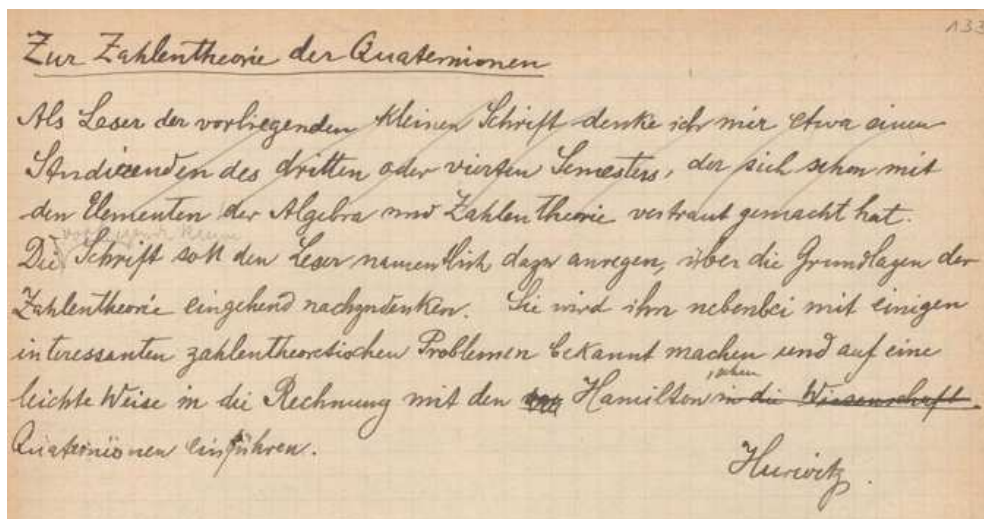 133
Zur Zahlentheorie der Quaternionen
Als Leser der vorliegenden kleinen Schrift denke ich mir etwa einen
Studierenden des dritten oder vierten Semesters, der sich schon mit
den Elementen der Algebra und Zahlentheorie vertraut gemacht hat.
vorliegende kleine
Die Schrift soll den Leser namentlich dazu anregen, über die Grundlagen der
Zahlentheorie eingehend nachzudenken. Sie wird ihn nebenbei mit einigen
interessanten zahlentheoretischen Problemen bekannt machen und auf eine
'schen
leichte Weise in die Rechnung mit den Hamilton in die Wissenschaft
Quaternionen einführen.
Hurwitz.